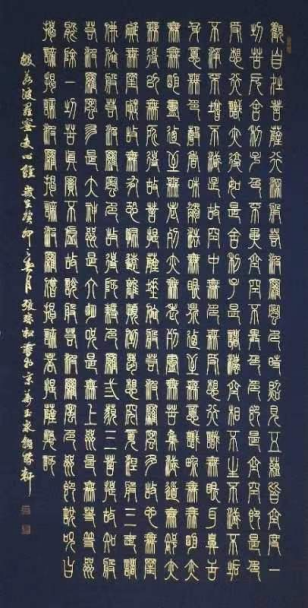 觀自在菩薩行深般若波羅蜜多時照見五蘊皆空度一
切苦厄舍利子色不異空空不異色色即是空空即是色
受想行識亦復如是舍利子是諸法空相不生不滅不垢
不淨不增不減是故空中無色無受想行識無眼耳鼻舌
身意無色聲香味觸法無眼界乃至無意識界無無明亦
無無明盡乃至無老死亦無老死盡無苦集滅道無智亦
無得以無所得故菩提薩埵依般若波羅蜜多故心無罣
礙無罣礙故無有恐怖遠離顛倒夢想究竟涅槃三世諸
佛依般若波羅蜜多故得阿耨多羅三藐三菩提故知般
若波羅蜜多是大神咒是大明咒是無上咒是無等等咒
能除一切苦真實不虛故說般若波羅蜜多咒即說咒曰
揭諦揭諦波羅揭諦波羅僧揭諦菩提薩婆訶
般若波羅蜜多心經歲在癸卯之春月張書於京玉泉軒